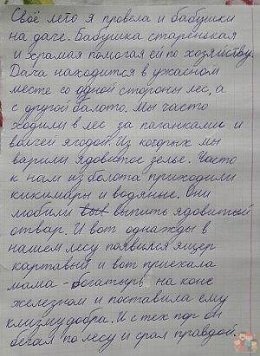 Своё лето я провела и бабушки
на даче. Бабушка старенькая
и храмая помогая ей по хозяйству.
Дача находится в ужасном
месте со одной стороны лес, а
с другой болото. Мы часто
ходили в лес за паганками и
волчей ягодой. Из которых мы
варили ядовитое зелье. Часто
к нам из болота приходили
кикимары и водяные. Они
любили выпить ядовитый
отвар. И вот однажды в
нашем лесу появился ящер
картавый и вот приехала
мама - богатырь на коне
железном и поставила ему
клизму добра. И с тех пор он
бегал по лесу и срал правдой.